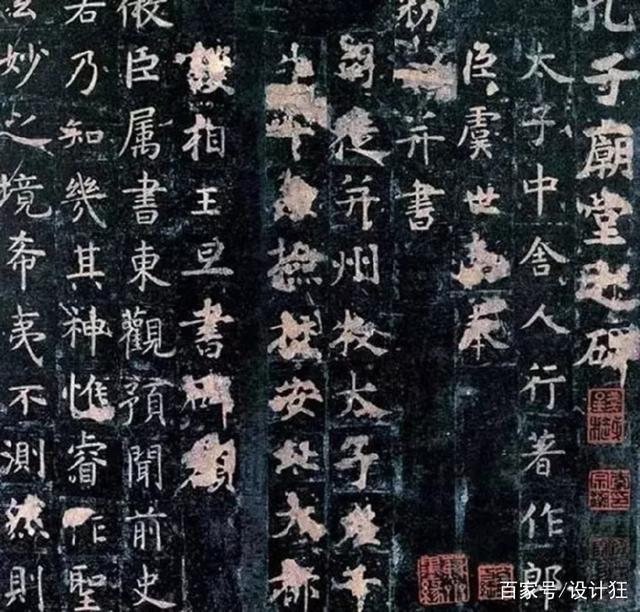 孔子廟堂之碑
太子中舍人行著作郎
臣虞世南奉
勑撰并書
司徒并州牧太子左千
牛率兼撿挍安北大都
護相王旦書碑額
微臣属書東觀預聞前史
若乃知幾其神惟睿作聖
玄妙之境希夷不測然則
百家号/设计狂